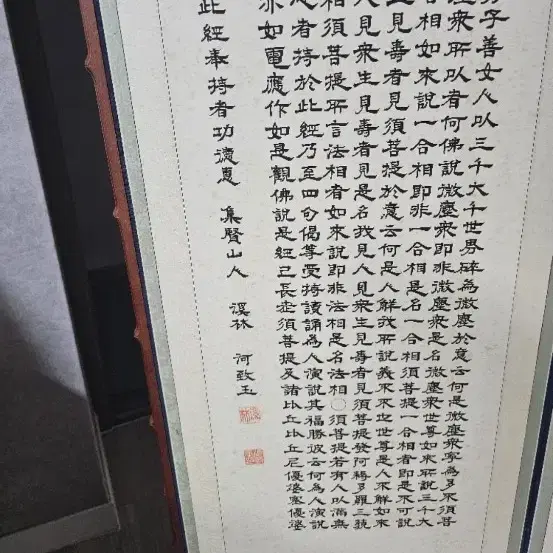 子善女人以三千大千世界碎為微塵於意云何是微塵衆寧為多不須菩
塵衆所以者何佛說微塵衆即非微塵衆是名微塵衆世尊如來所說三千大
合相如來說一合相即非一合相是名一合相須菩提一合相者即是不可說
見壽者見須菩提於意云何是人解我所說義不不也世尊是人不解如來
人見衆生見壽者見是名我見人見衆生見壽者見須菩提發阿耨多羅三藐
相須菩提所言法相者如來說即非法相是名法相〇須菩提若有人以滿無
心者持於此經乃至四句偈等受持讀誦為人演說其福勝彼云何為人演說
亦如電應作如是觀佛說是經已長老須菩提及諸比丘比丘尼優婆塞優婆
此經奉持者功德惠 集賢山人 溪林 河致玉